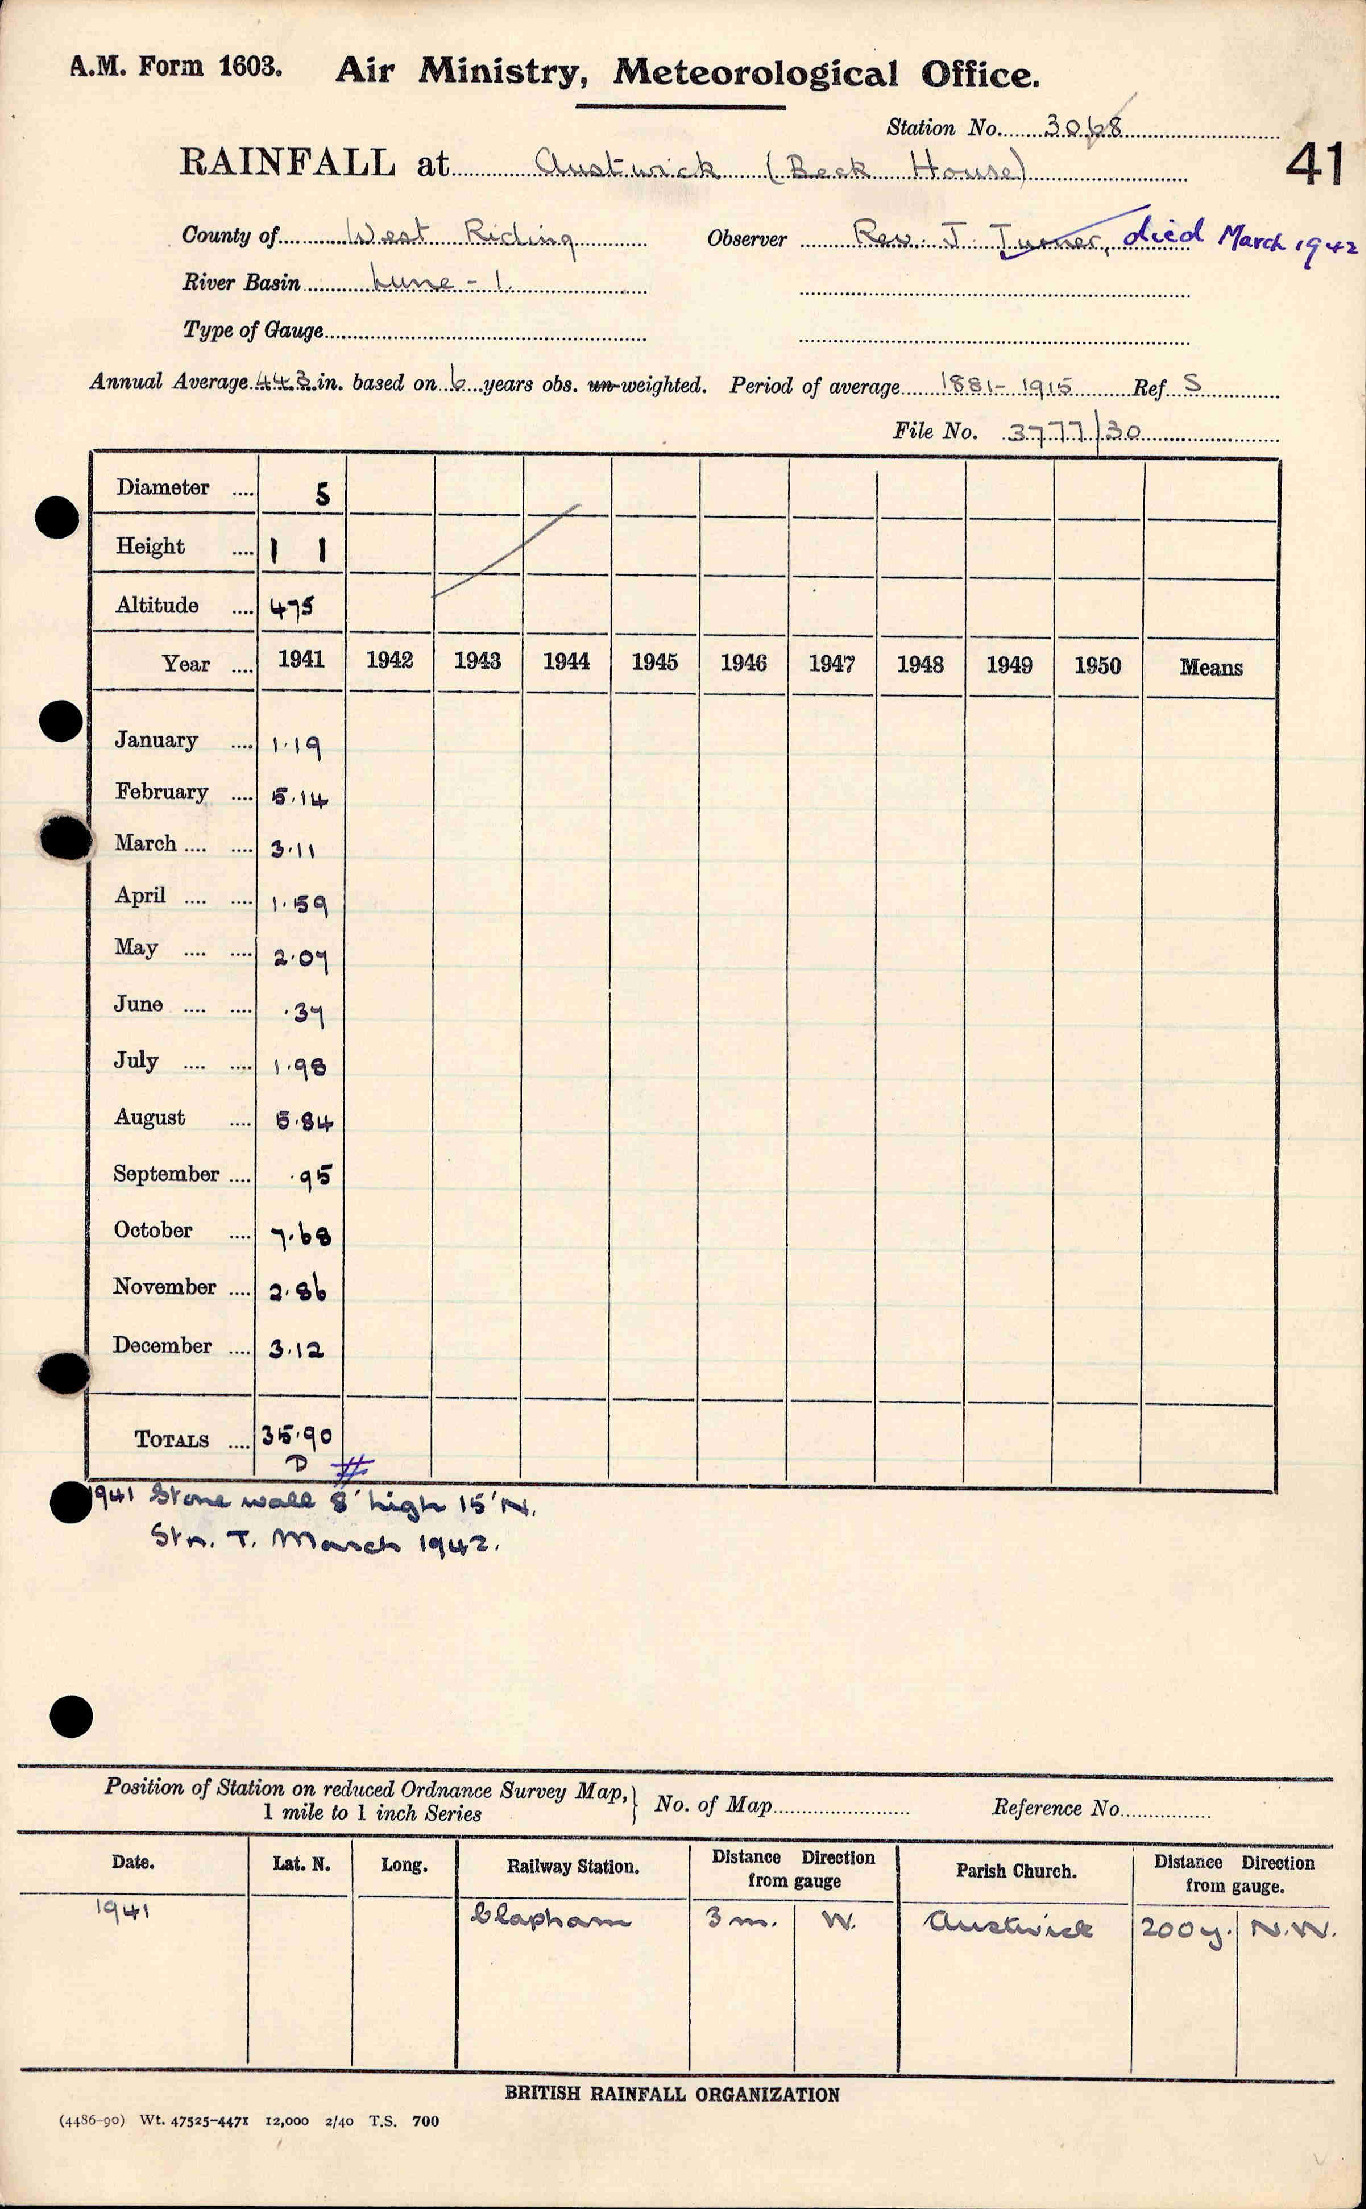 A.M. Form 1603. Air Ministry, Meteorological Office.
Station No. 3068
RAINFALL at Austwick (Beck House) 41
County of West Riding Observer Rev. J. Turner, died March 1942
River Basin Lune - 1.
Type of Gauge
Annual Average 44.3 in. based on 6 years obs. un-weighted. Period of average 1881-1915 Ref S
File No. 3777/30
Diameter .... 5
Height .... 1 1
Altitude .... 475
Year .... 1941 1942 1943 1944 1945 1946 1947 1948 1949 1950 Means
January .... 1.19
February .... 5.14
March .... .... 3.11
April .... .... 1.59
May .... .... 2.07
June .... .... .37
July .... .... 1.98
August .... 5.84
September .... .95
October .... 7.68
November .... 2.86
December .... 3.12
TOTALS .... 35.90
D #
1941 Stone wall 8' high 15' N.
Stn. T. March 1942.
Position of Station on reduced Ordnance Survey Map, } No. of Map Reference No.
1 mile to 1 inch Series
Date. Lat. N. Long. Railway Station. Distance Direction from gauge Parish Church. Distance Direction from gauge.
1941 Clapham 3 m. W. Austwick 200 y. N.W.
BRITISH RAINFALL ORGANIZATION
(4486-90) Wt. 47525-4471 12,000 2/40 T.S. 700